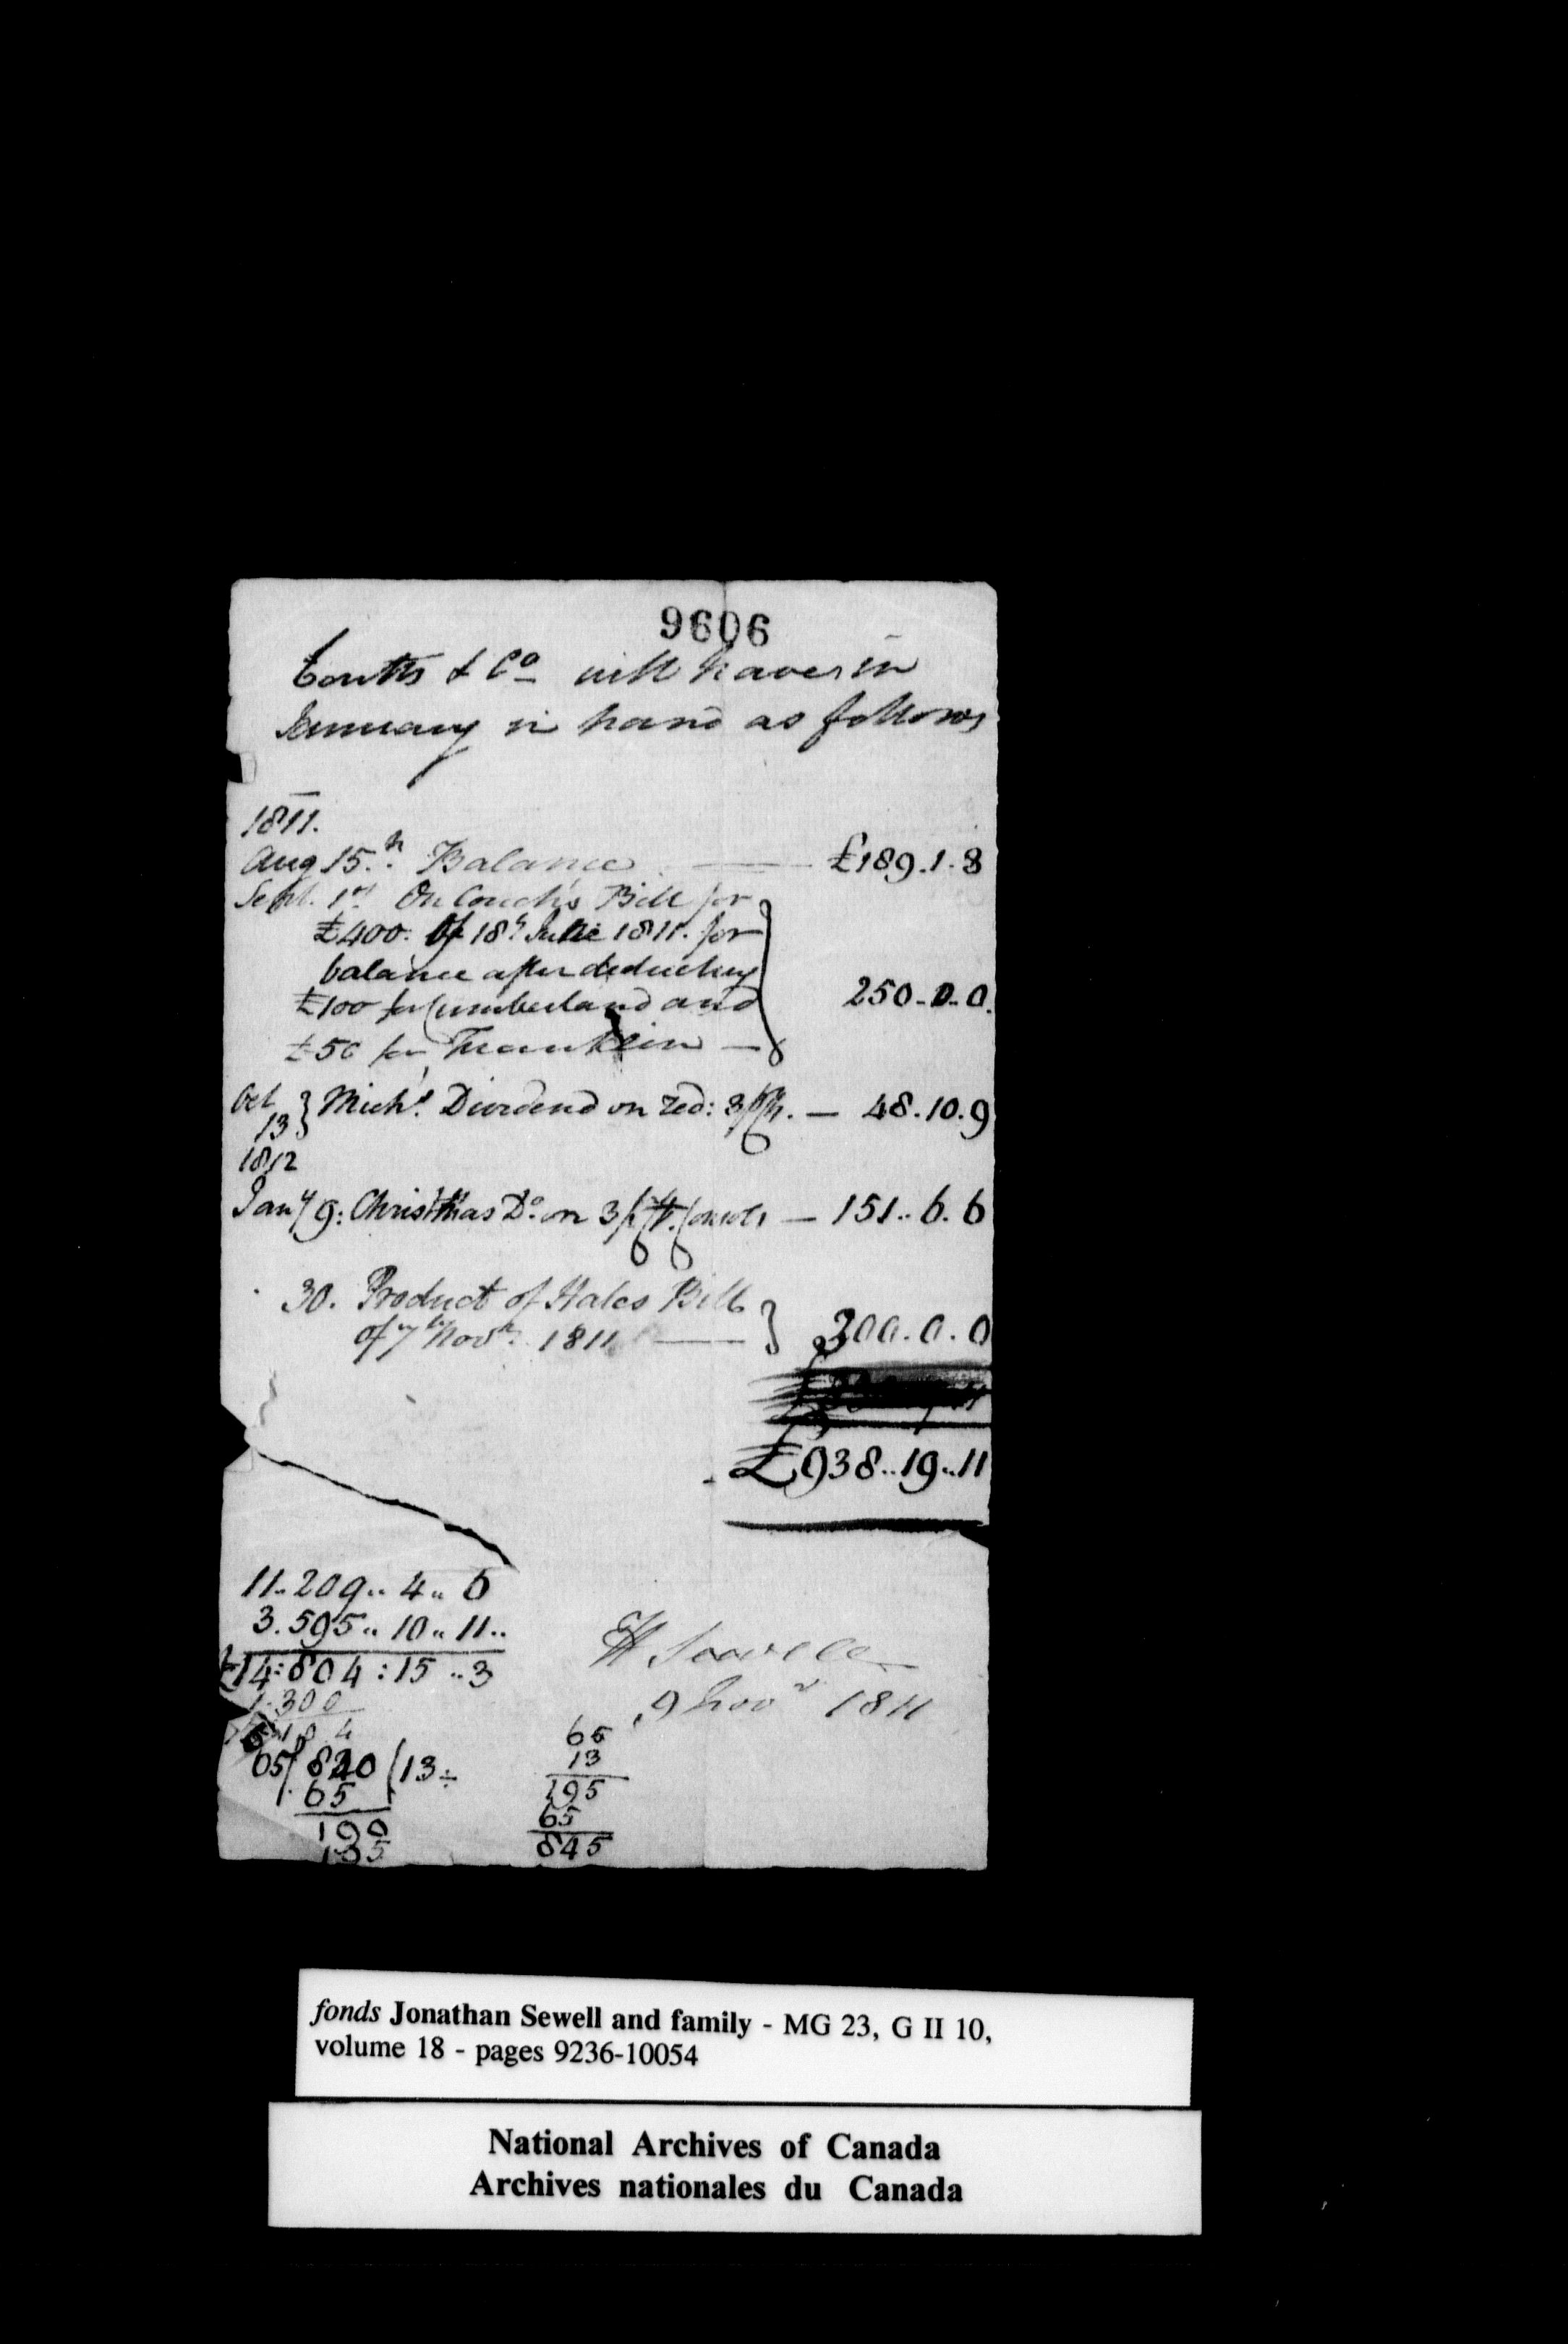 9606
Coutts & Co will have in
January in hand as follows
1811.
Aug 15.th Balance — £189.1.8
Sept. 1st On Couch's Bill for
£400. of 18th June 1811. for
balance after deducting
£100 for Cumberland and
£50 for Franklin — 250-0-0.
Oct 13 } Michs. Dividend on red: 3 p Ct. — 48.10.9
1812
Jany 9: Christmas Do. on 3 p Ct. Consols — 151..6.6
30. Product of Hales Bill
of 7th Novr. 1811 — } 300.0.0
£938..19..11
11..209..4..6
3.595..10..11..
£14:804:15..3
1.300
65) 840 (13÷
65
190
195
65
13
195
65
845
Sewell
9 Novr 1811
fonds Jonathan Sewell and family - MG 23, G II 10,
volume 18 - pages 9236-10054
National Archives of Canada
Archives nationales du Canada